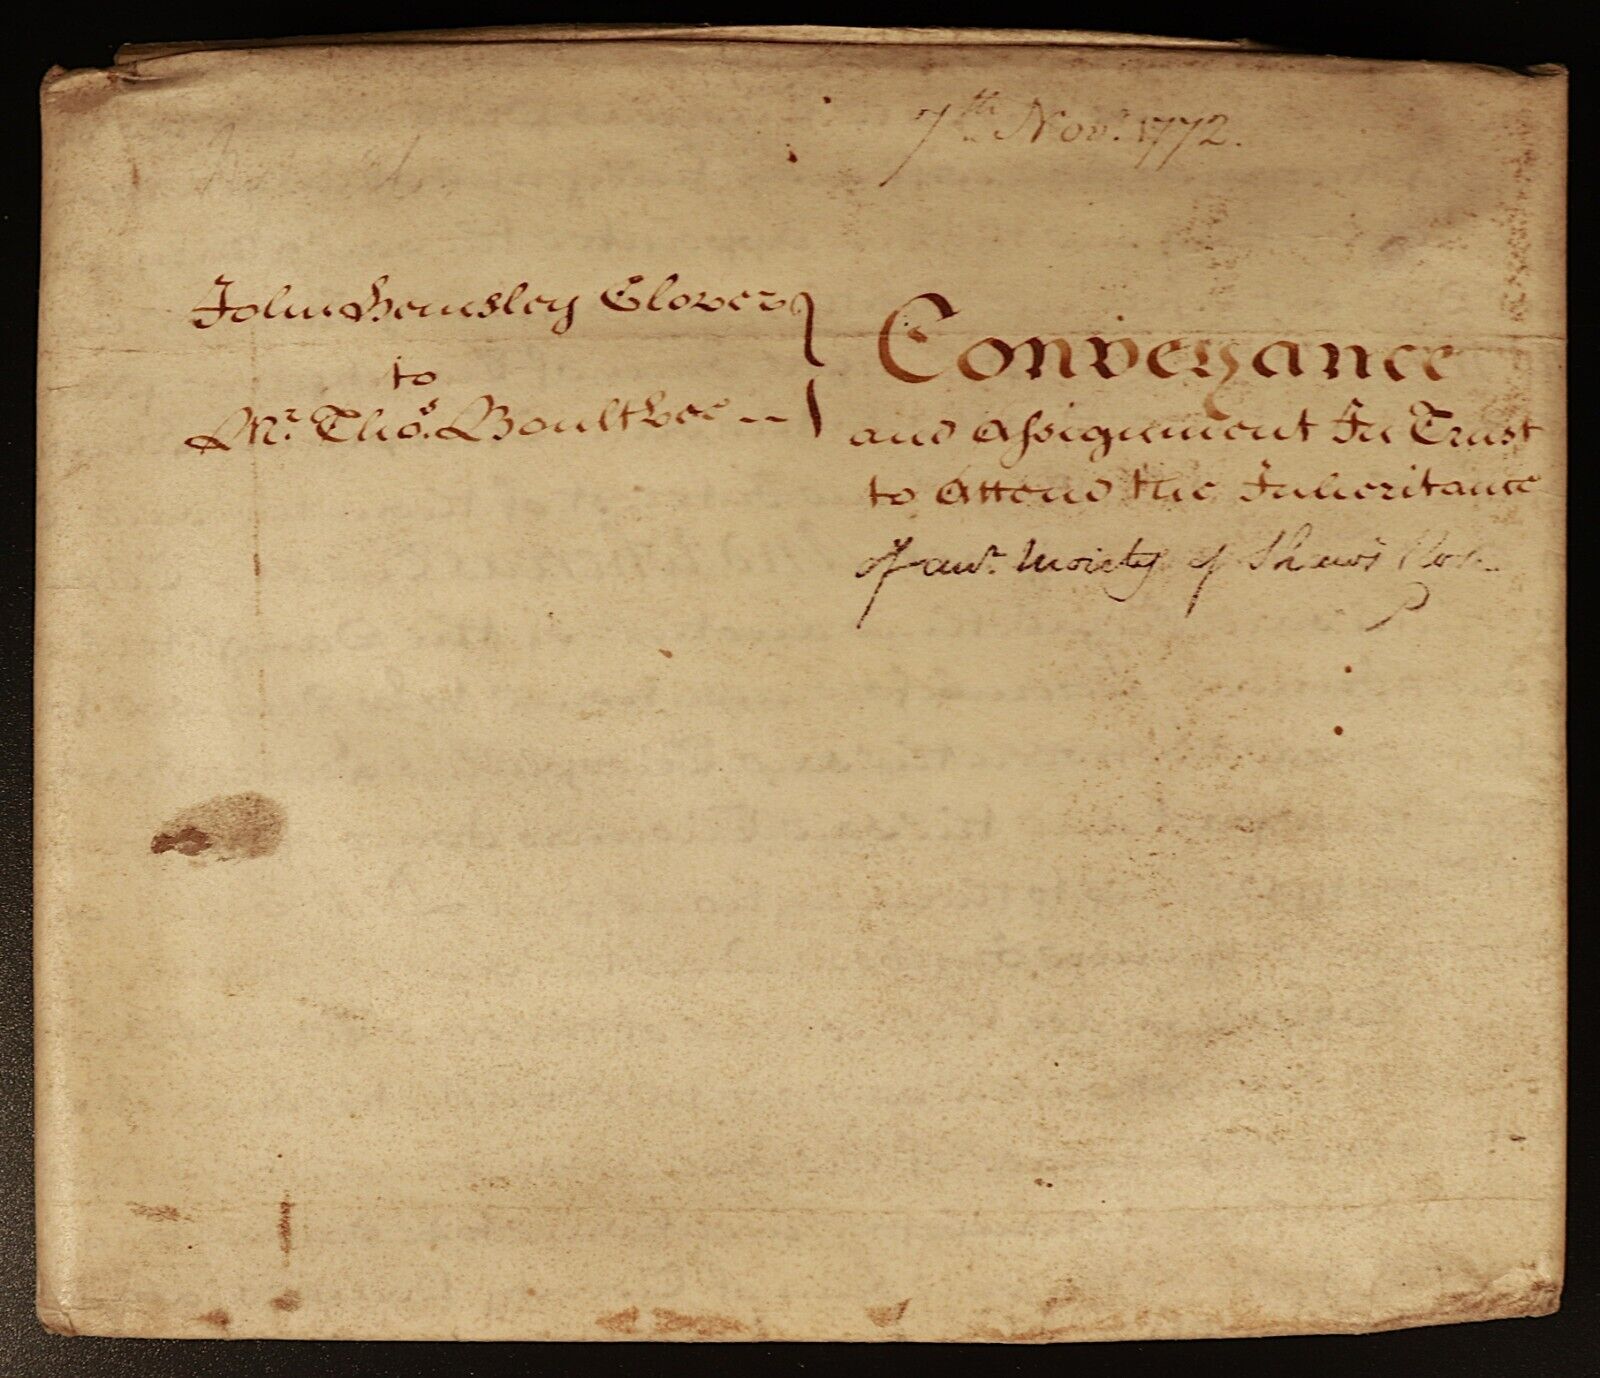 7th Novr. 1772.
John Hemsley Glover
to
Mr. Thos. Boultbee --
Conveyance
and Assignment In Trust
to Attend the Inheritance
of anr. Moiety of Shaw's